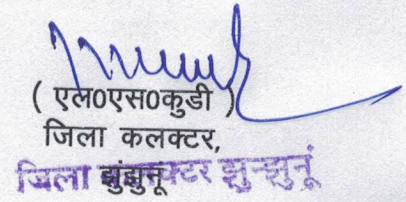 ( एल0एस0कुडी )
जिला कलक्टर,
झुंझुनू
जिला कलक्टर झुन्झुनूं